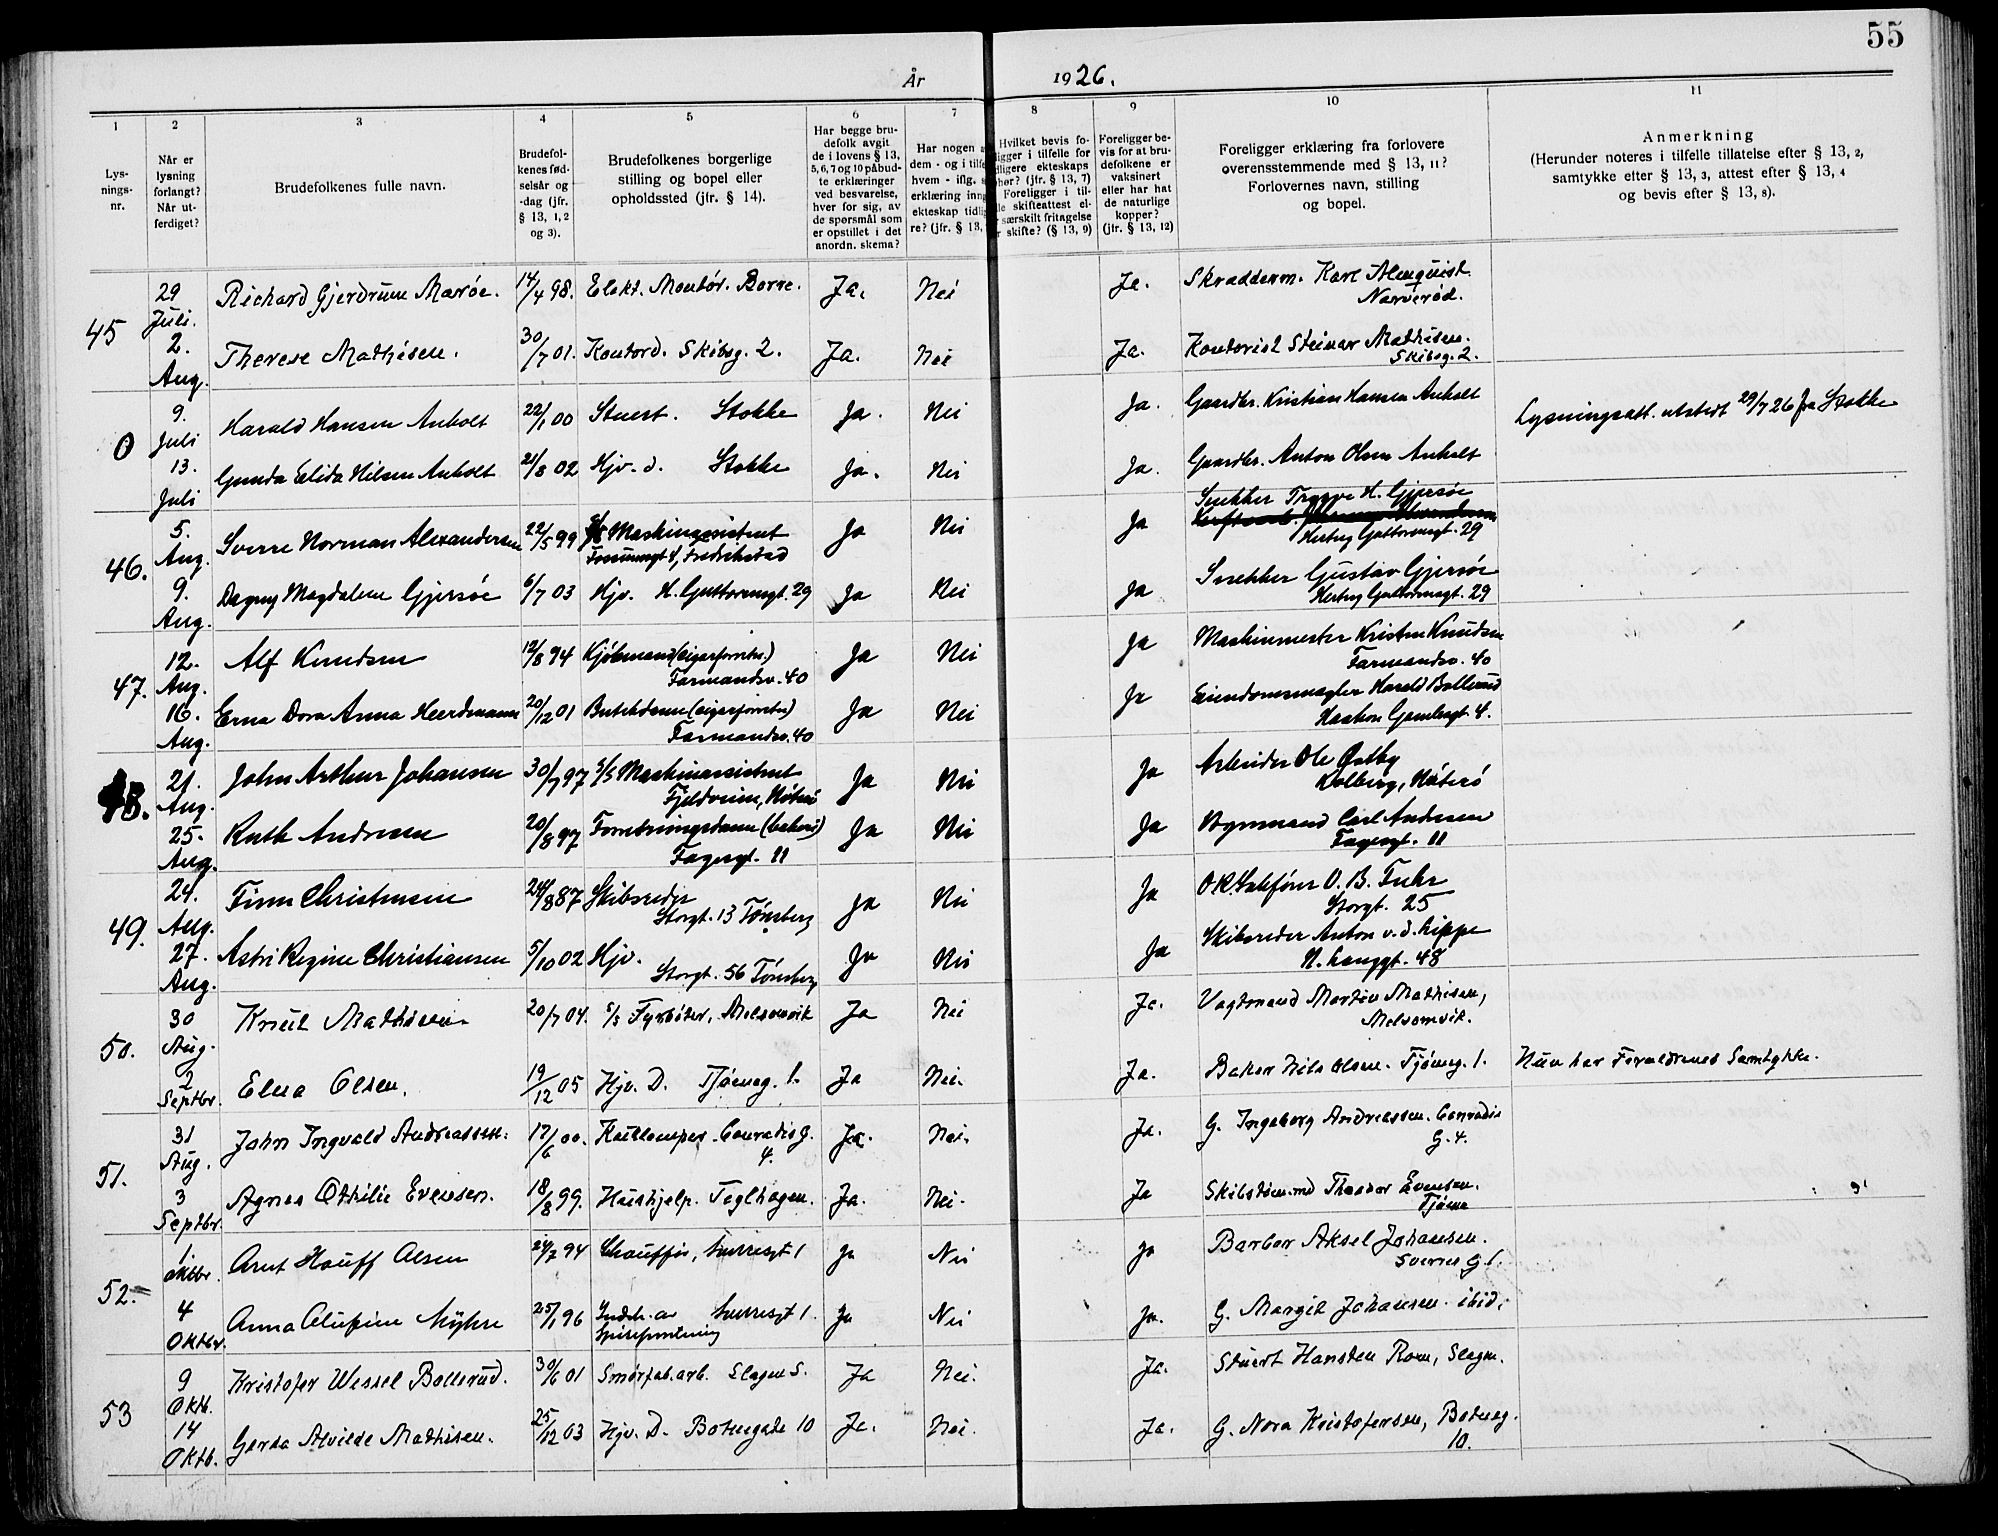 55
År 1926.
1 2 3 4 5 6 7 8 9 10 11
Lys-
nings-
nr.
Når er
lysning
forlangt?
Når ut-
ferdiget?
Brudefolkenes fulle navn.
Brudefol-
kenes fød-
selsår og
-dag (jfr.
§ 13, 1, 2
og 3).
Brudefolkenes borgerlige
stilling og bopel eller
opholdssted (jfr. § 14).
Har begge bru-
defolk avgit
de i lovens § 13,
5, 6, 7 og 10 påbud-
te erklæringer
ved besvarelse,
hver for sig, av
de spørsmål som
er opstillet i det
anordn. skema?
Har nogen a
dem - og i tilfe
hvem - iflg. s
erklæring inng
ekteskap tidlig
re? (jfr. § 13,
Hvilket bevis fo-
ligger i tilfelle for
dligere ekteskaps
hør? (jfr. § 13, 7)
Foreligger i til-
le skifteattest el-
r særskilt fritagelse
r skifte? (§ 13, 9)
Foreligger be-
vis for at bru-
defolkene er
vaksinert
eller har hat
de naturlige
kopper?
(jfr. § 13, 12)
Foreligger erklæring fra forlovere
overensstemmende med § 13, 11?
Forlovernes navn, stilling
og bopel.
Anmerkning
(Herunder noteres i tilfelle tillatelse efter § 13, 2,
samtykke efter § 13, 3, attest efter § 13, 4
og bevis efter § 13, 8).
45
29 Juli. Richard Gjerdrum Marøe. 14/4 98. Elekt. Montör. Borre. Ja. Nei Ja. Skradderm. Karl Almquist
Narverød.
2. Aug. Therese Mathisen. 30/7 01. Kontord. Skibsg. 2. Ja. Nei Ja. Kontorist Steinar Mathisen.
Skibsg. 2.
0
9. Juli Harald Hansen Anholt 22/1 00 Stuert. Stokke Ja. Nei Ja. Gaardbr. Kristian Hansen Anholt Lysningsatt. utstedt 29/7 26 fra Stokke
13. Juli Gunda Elida Nilsen Anholt 21/8 02 Hjv. d. Stokke Ja. Nei Ja. Gaardbr. Anton Olsen Anholt
46.
5. Aug. Sverre Norman Alexandersen 22/5 99 Maskinassistent
Fredrikstad Ja Nei Ja Snekker Trygve H. Gjersøe
Hertug Guttormsgt. 29
9. Aug. Dagny Magdalene Gjersøe 6/7 03 Hjv. H. Guttormsgt. 29 Ja Nei Ja Snekker Gustav Gjersøe
Hertug Guttormsgt. 29
47.
12. Aug. Alf Knudsen 12/8 94 Kjøbmand (cigarforretn.)
Farmandsv. 40 Ja Nei Ja Maskinmester Kristen Knudsen
Farmandsv. 40
16. Aug. Erna Dora Anna Heerdmann 20/12 01 Butikdame (cigarforretn.)
Farmandsv. 40 Ja Nei Ja Eiendomsmægler Harald Bollerud
Haakon Gamlesgt. 4.
48.
21. Aug. John Arthur Johansen 30/7 97 s/s Maskinassistent
Fjeldheim, Nøterö Ja Nei Ja Arbeider Ole Østby
Kolberg, Nøterö
25. Aug. Ruth Andresen 20/8 97 Forretningsdame (bakeri)
Fagegt. 11 Ja Nei Ja Carl Andersen
Fagegt. 11
49.
24. Aug. Finn Christensen 24/8 87 Skibsreder
Storgt. 13 Tønsberg Ja Nei Ja O.R.Sakfører O. B. Fuhr
Storgt. 25
27. Aug. Astri Regine Christiansen 5/10 02 Hjv.
Storgt. 56 Tønsberg Ja Nei Ja Skibsreder Anton v. d. Lippe
N. Langgt. 48
50.
30 Aug. Knut Mathisen 20/7 04. s/s Fyrböter, Melsomvik Ja Nei Ja. Vagtmand Martin Mathisen,
Melsomvik.
2 Septbr. Elna Olsen. 19/12 05 Hjv. D. Tjömeg. 1. Ja Nei. Ja. Baker Nils Olsen. Tjömeg. 1. Hun har Forældrenes Samtykke.
51.
31 Aug. John Ingvald Andreassen. 17/6 00. Kullemper. Conradis G.
4. Ja. Nei. Ja. G. Ingeborg Andreassen. Conradis
G. 4.
3 Septbr. Agnes Othilie Evensen. 18/8 99. Hushjelp. Teglhagen. Ja. Nei. Ja Skibstömmd Theodor Evensen.
Tjöme
52.
1. Oktbr. Arnt Hauff Olsen 24/2 94 Chauffør, Sverresgt 1 Ja Nei Ja Barber Aksel Johansen.
Sverres G 1.
4 Oktbr. Anna Olufine Myhre 25/1 96 Sverresgt 1. Ja Nei Ja. G. Margit Johansen. ibid.
53
9 Oktb. Kristofer Wessel Bollerud. 30/6 01 Smörfab.arb. Slagen S. Ja Nei. Ja. Stuert Hansten Rom, Slagen.
14 Oktb. Gerda Alvilde Mathisen. 25/12 03 Hjv. D. Botnegade 10 Ja. Nei. Ja. G. Nora Kristofersen, Botneg.
10.